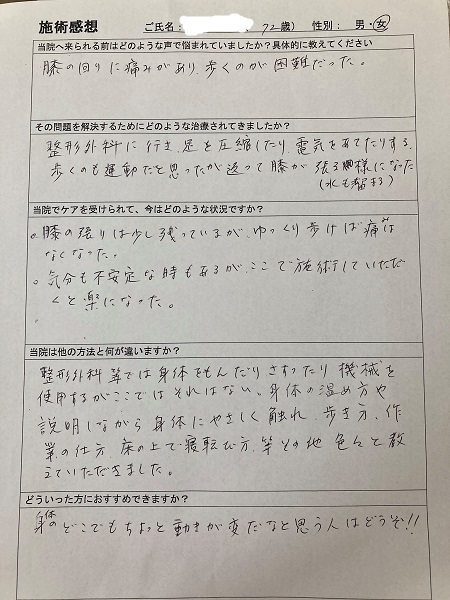 施術感想
ご氏名：
72歳）
性別： 男・女
当院へ来られる前はどのような声で悩まれていましたか？具体的に教えてください
膝の回りに痛みがあり、歩くのが困難だった。
その問題を解決するためにどのような治療されてきましたか？
整形外科に行き、足を圧縮したり、電気をあてたりする、
歩くのも運動だと思ったが返って膝が張る様になった
（水も溜まる）
当院でケアを受けられて、今はどのような状況ですか？
。膝の張りは少し残っているが、ゆっくり歩けば痛みは
なくなった。
。気分も不安定な時もあるが、ここで施術していただ
くと楽になった。
当院は他の方法と何が違いますか？
整形外科等では身体をもんだりさすったり機械を
使用するがここではそれはない。身体の温め方や
説明しながら身体にやさしく触れ、歩き方、作
業の仕方、床の上で寝転び方、等その他色々と教
えていただきました。
どういった方におすすめできますか？
身体のどこでもちょっと動きが変だなと思う人はどうぞ!!